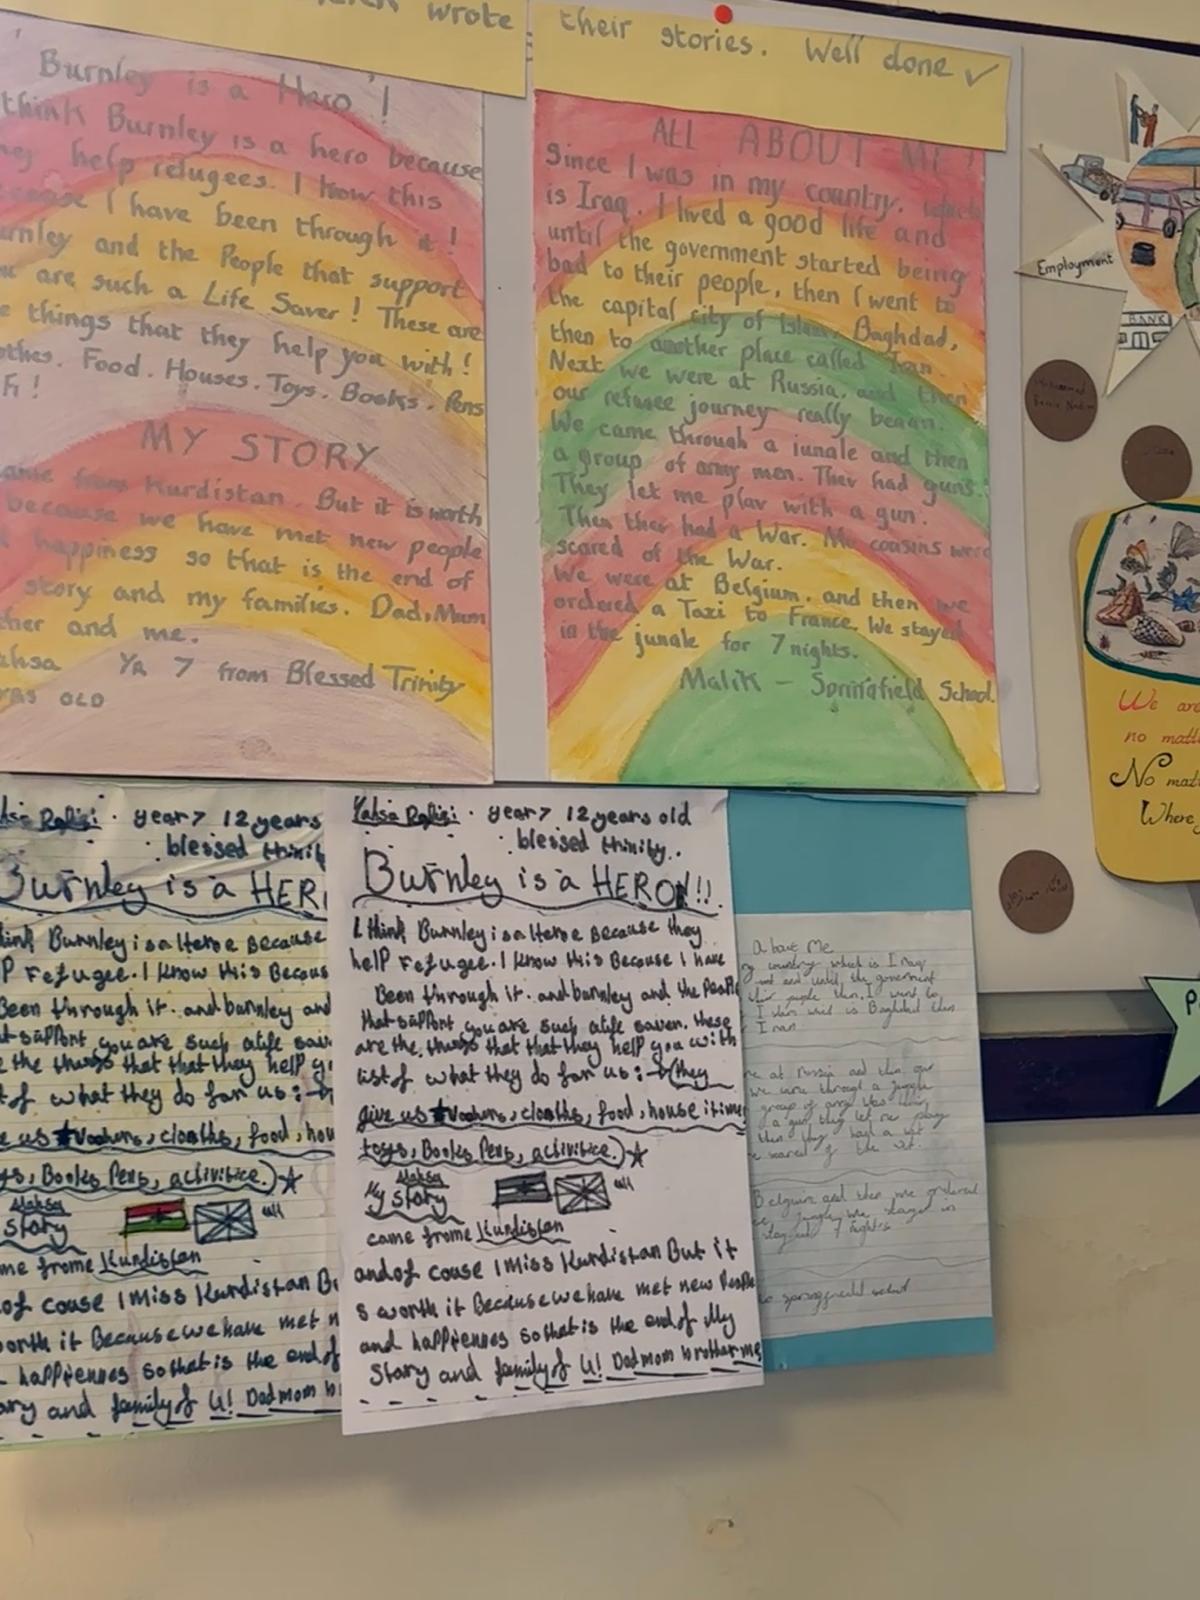 wrote
their stories. Well done ✓
Burnley is a Hero'!
think Burnley is a hero because
help refugees. I know this
I have been through it!
and the People that support
are such a Life Saver! These are
things that they help you with!
Food. Houses. Toys. Books. Pens
MY STORY
from Kurdistan. But it is worth
because we have met new people
happiness so that is the end of
story and my families. Dad, Mum
and me.
YR 7 from Blessed Trinity
OLD
ALL ABOUT ME!
Since I was in my country, which
is Iraq. I lived a good life and
until the government started being
bad to their people, then I went to
the capital city of Islam, Baghdad,
then to another place called Iran.
Next we were at Russia, and then
our refugee journey really began.
We came through a jungle and then
a group of army men. They had guns.
They let me play with a gun.
Then they had a War. My cousins were
scared of the War.
We were at Belgium, and then we
ordered a Taxi to France. We stayed
in the jungle for 7 nights.
Malik - Springfield School.
Employment
BANK
We are
no
No
Where
year 7 12 years
blessed
Burnley is a
Burnley is a Heroe Because
Fefugee. I know this
Been through it. and burnley and
you are such a life
the things that that they help
of what they do for us:
us Voochers, cloaths, food,
Books Pens, activitice.) ☆
Story
frome Kurdistan
of couse I Miss Kurdistan
worth it Because we have met
happiennes so that is the end of
and family of U! Dad mom
year 7 12 years old
blessed trinity..
Burnley is a HERO!!!
I think Burnley is a Heroe Because they
help Fefugee. I know this Because I have
Been through it. and burnley and the People
that support you are such a life saver. these
are the things that that they help you with
list of what they do for us: → (they
give us Voochers, cloaths, food, house
toys, Books Pens, activitice.) ☆
My Story
came frome Kurdistan
and of couse I Miss Kurdistan But it
s worth it Because we have met new People
and happiennes so that is the end of My
Story and family of U! Dad mom brother me
about Me
country which is Iraq
and until the government
people then I went to
is Baghdad then
Iran
at Russia and then our
we came through a
group of army
a gun they let me play
then they had a
scared of the
Belguim and then we ordered
7 nights